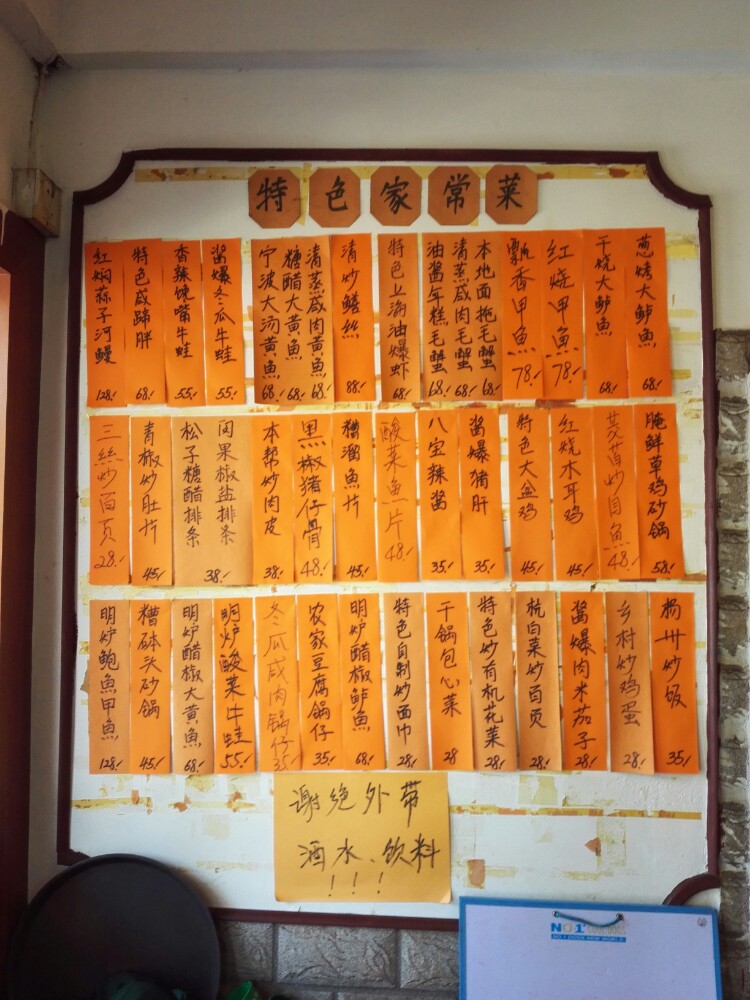 特色家常菜
红焖蒜子河鳗 128/
特色咸蹄胖 68/
香辣馋嘴牛蛙 55/
酱爆冬瓜牛蛙 55/
宁波大汤黄鱼 68/
糖醋大黄鱼 68/
清蒸咸肉黄鱼 68/
清炒鳝丝 88/
特色上海油爆虾 68/
油酱年糕毛蟹 68/
清蒸咸肉毛蟹 68/
本地面拖毛蟹 68/
飘香甲鱼 78/
红烧甲鱼 78/
干烧大鲈鱼 68/
葱烤大鲈鱼 68/
三丝炒百页 28/
青椒炒肚片 45/
松子糖醋排条
闲果椒盐排条 38/
本帮炒肉皮 38/
黑椒猪仔骨 48/
糟溜鱼片 45/
酸菜鱼片 48/
八宝辣酱 35/
酱爆猪肝 35/
特色大盆鸡 45/
红烧木耳鸡 45/
炒目鱼 48/
腌鲜草鸡砂锅 58/
明炉鲍鱼甲鱼 128/
糟砵头砂锅 45/
明炉醋椒大黄鱼 68/
明炉酸菜牛蛙 55/
冬瓜咸肉锅仔 35/
农家豆腐锅仔 35/
明炉醋椒鲈鱼 68/
特色自制炒面巾 28/
干锅包心菜 28
特色炒有机花菜 28/
杭白菜炒百页 28/
酱爆肉米茄子 28/
乡村炒鸡蛋 28/
扬州炒饭 35/
谢绝外带
酒水、饮料
!!!
NO1